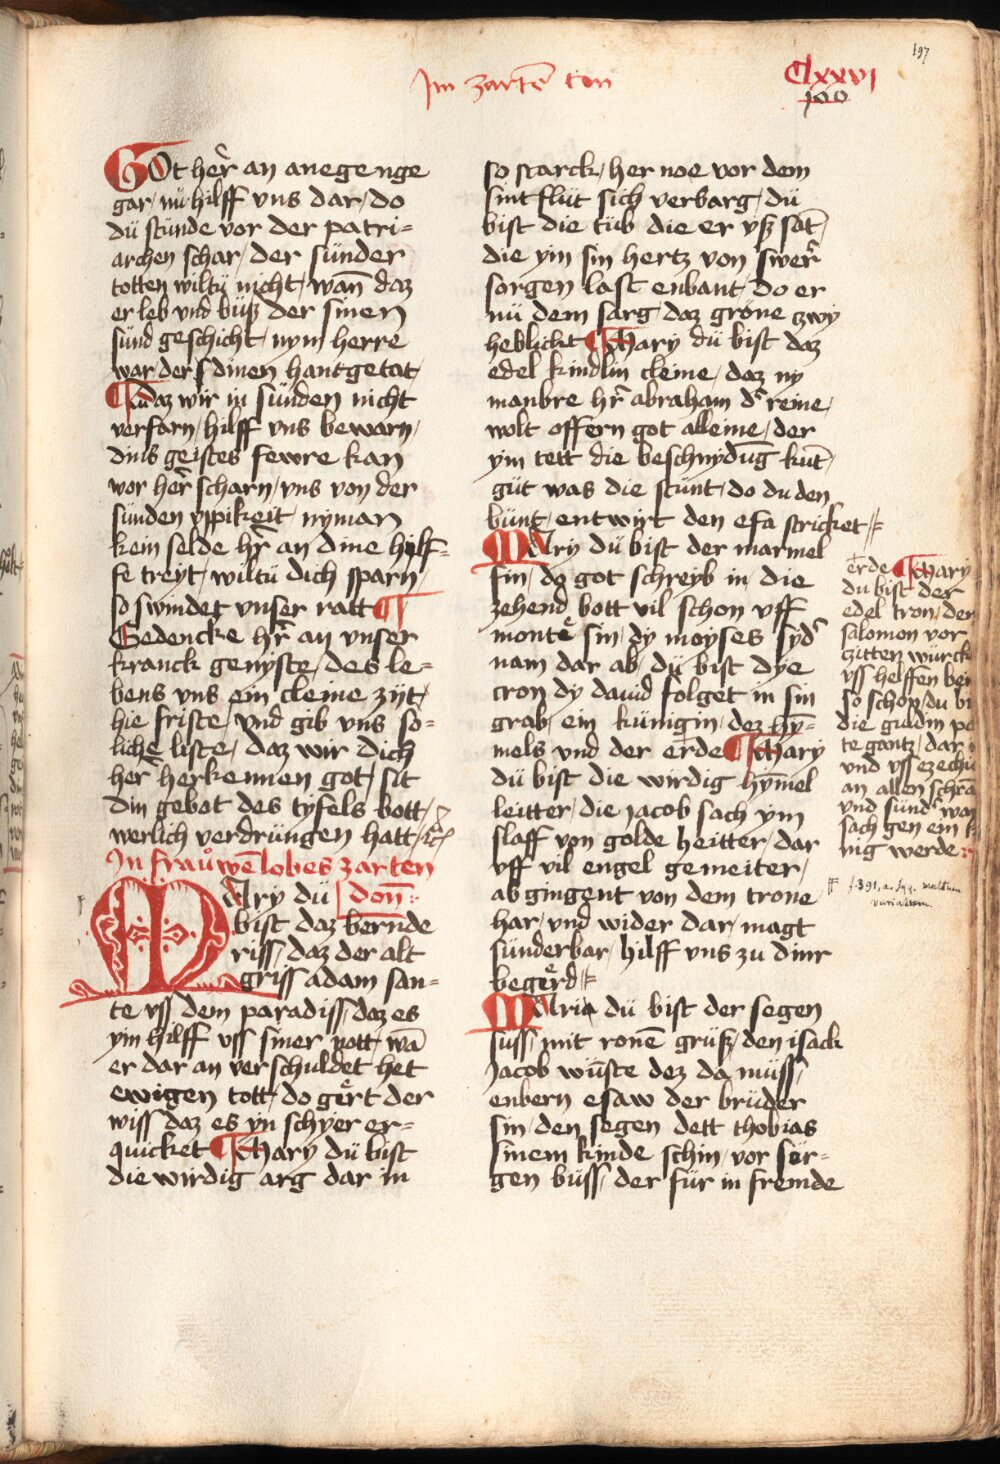 197
Im zartē ton
Clxxvi
100
GOt her̄ an anegenge
gar / nü hilff vns dar / do
dü stünde vor der patri=
archen schar / der sünder
totten wiltü nicht / wan̄ daz
er leb vnd büß der sinen
sünd geschicht / nym herre
war / der s dinen hantgetat /
daz wir in sünden nicht
verfarn / hilff vns bewarn /
dins geistes fewre kan
vor her̄ scharn / vns von der
sünden vppikeit / nyman
kein selde hr̄ an dine hylf=
fe treyt / wiltü dich sparn /
so swindet vnser ratt
Gedencke hr̄ an vnser
kranck genyste / des le=
bens vns ein cleine zijt /
hie friste / vnd gib vns so=
liche liste / daz wir dich
her̄ herkennen got / sit
din gebot des tyfels bott /
werlich verdrüngen hatt /
In frauwē lobes zarten
MAry dü don̄ :
bist daz bern̄de
riss / daz der alt
griss adam san=
te vss dem paradiss / daz es
ym hilff vss siner nott / wā
er dar an verschuldet het
ewigen tott / do gert der
wiss daz es yn schyer er=
quicket Mary dü bist
die wirdig arg dar in
so starck / her noe vor dem
sint flüt sich verbarg / dü
bist die tüb die er vß sāt /
die yin sin hertz von swer̄
sorgen last enbant / do er
nü dem sarg / daz gröne zwy
heblickt Mary dü bist daz
edel kindlin cleine / daz ny
manbre hr̄ abraham dr̄ reine /
wolt offern got alleine / der
ym tett die beschnydūg kūt /
güt was die stünt / do du den
bünt / entwirt den efa stricket
MAry dü bist der marmel
fin / do got schreyb in die
zehend bott vil schon vff
monte sin / dy moyses syd
nam dar ab / dü bist dye
cron dy dauid folget in sin
grab / ein künigin / dez hȳ=
mels vnd der erde Mary
dü bist die wirdig hȳmel
leitter / die jacob sach ym
slaff von golde heitter / dar
vff vil engel gemeiter /
ab gingent von dem trone
har / vnd wider dar / magt
sünderbar / hilff vns zu dinr
begerd
MAria dü bist der segen
süss / mit ronē grüß / den isack
Jacob wüste dez da müss /
enbern esaw der brüder
sin / den segen dett thobias
sinem kinde schin / vor sör=
gen büss / der für in fremde
erde Mary
du bist der
edel tron / den
salomon vor
zitten würck
vss helffen bei
so schon / du bi
die guldin po
te gantz / dar
vnd vss ezechie
an allen schra
vnd sünd wa
sach gen ein k
nig werde
f. 391, a. sqq. multum
variatum.